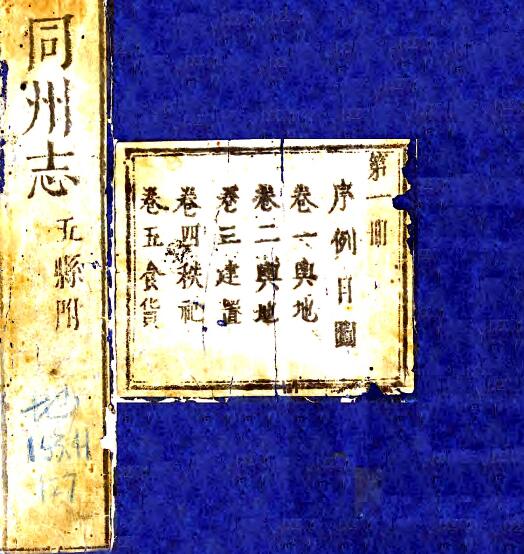 第一冊
序例目圖
卷一輿地
卷二輿地
卷三建置
卷四秩祀
卷五食貨
同州志
五縣附
地